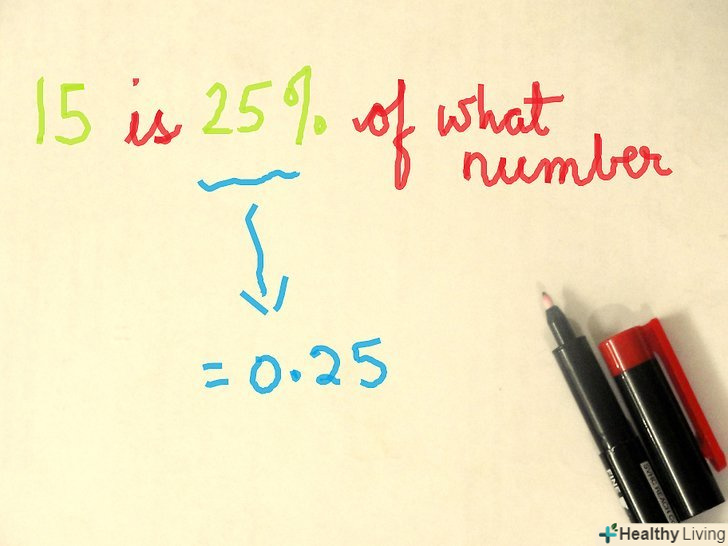 15 is 25% of what
number
= 0.25
FINE
Healthy Living